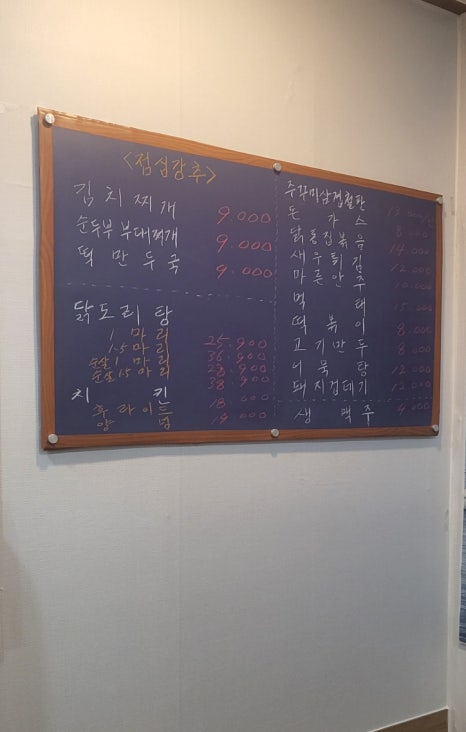 <점심강추>
김치찌개 9.000
순두부 부대찌개 9.000
떡만두국 9.000
닭도리탕
1 마리 25.900
1.5 마리 36.900
순살 1 마리 28.900
순살 1.5 마리 38.900
치킨
후라이드 18.000
양념 19.000
쭈꾸미삼겹철판
돈가스 8.000
닭똥집볶음 14.000
새우튀김 12.000
마른안주 10.000
먹태 15.000
떡볶이 8.000
고기만두 8.000
어묵탕 12.000
돼지껍데기 12.000
생맥주 4.000